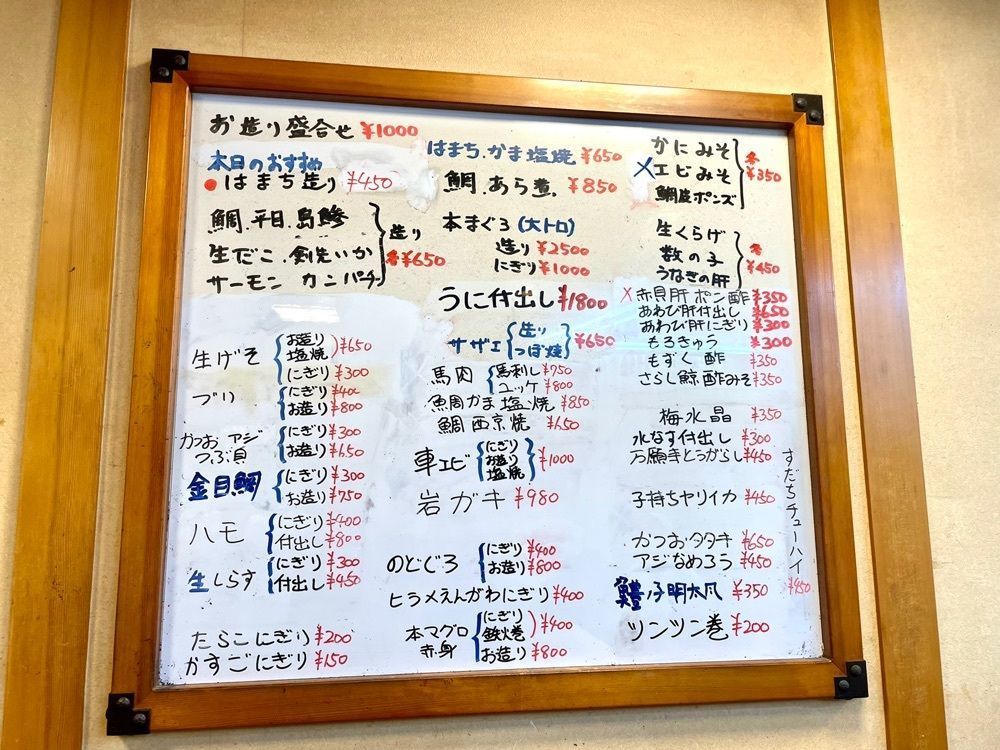 お造り盛合せ ¥1000
本日のおすすめ
はまち造り ¥450
鯛.平目.島鯵
生だこ.剣先いか
サーモン カンパチ
造り
各¥650
生げそ
お造り
塩焼
¥650
にぎり ¥300
ブリ
にぎり ¥400
お造り ¥800
かつお アジ
つぶ貝
にぎり ¥300
お造り ¥650
金目鯛
にぎり ¥300
お造り ¥750
ハモ
にぎり ¥400
付出し ¥800
生しらす
にぎり ¥300
付出し ¥450
たらこにぎり ¥200
かすごにぎり ¥150
はまち.かま塩焼 ¥650
鯛.あら煮. ¥850
本まぐろ(大トロ)
造り ¥2500
にぎり ¥1000
うに付出し ¥1800
サザエ
造り
つぼ焼
¥650
馬肉
馬刺し ¥750
ユッケ ¥800
鯛かま塩焼 ¥850
鯛西京焼 ¥650
車エビ
にぎり
お造り
塩焼
¥1000
岩ガキ ¥980
のどぐろ
にぎり ¥400
お造り ¥800
ヒラメえんがわにぎり ¥400
本マグロ
赤身
にぎり
鉄火巻
¥400
お造り ¥800
かにみそ
エビみそ
鯛皮ポンズ
各
¥350
生くらげ
数の子
うなぎの肝
各
¥450
赤貝肝ポン酢 ¥350
あわび肝付出し ¥650
あわび肝にぎり ¥300
もろきゅう ¥300
もずく酢 ¥350
さらし鯨酢みそ ¥350
梅水晶 ¥350
水なす付出し ¥300
万願寺とうがらし ¥450
子持ちヤリイカ ¥450
かつおタタキ ¥650
アジなめろう ¥450
¥350
ツンツン巻 ¥200
すだちチューハイ
¥450